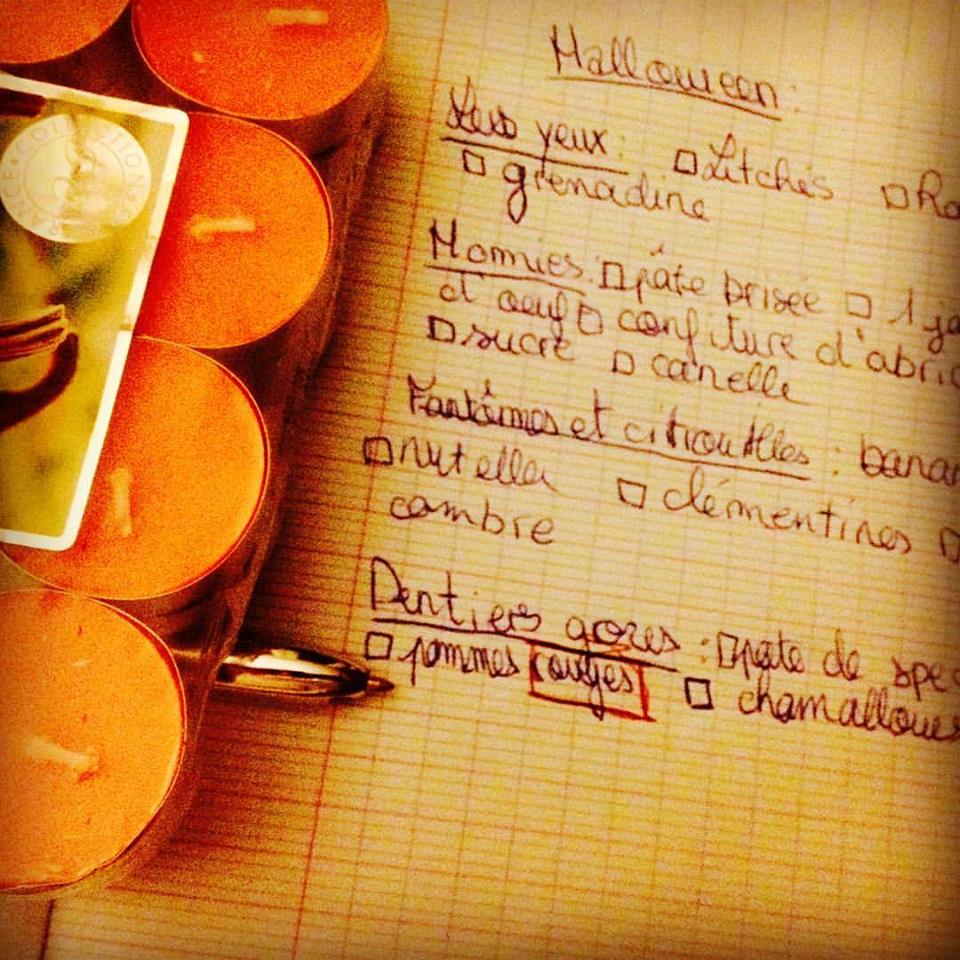 Halloween :
Les yeux : □ Litchis □ Ra
□ grenadine
Momies : □ pâte brisée □ 1 ja
d'oeuf □ confiture d'abric
□ sucre □ canelle
Fantômes et citrouilles : banan
□ nutella □ clémentines □
combre
Dentiers gores : □ pate de spec
□ pommes rouges □ chamallows
COLLECTIONS